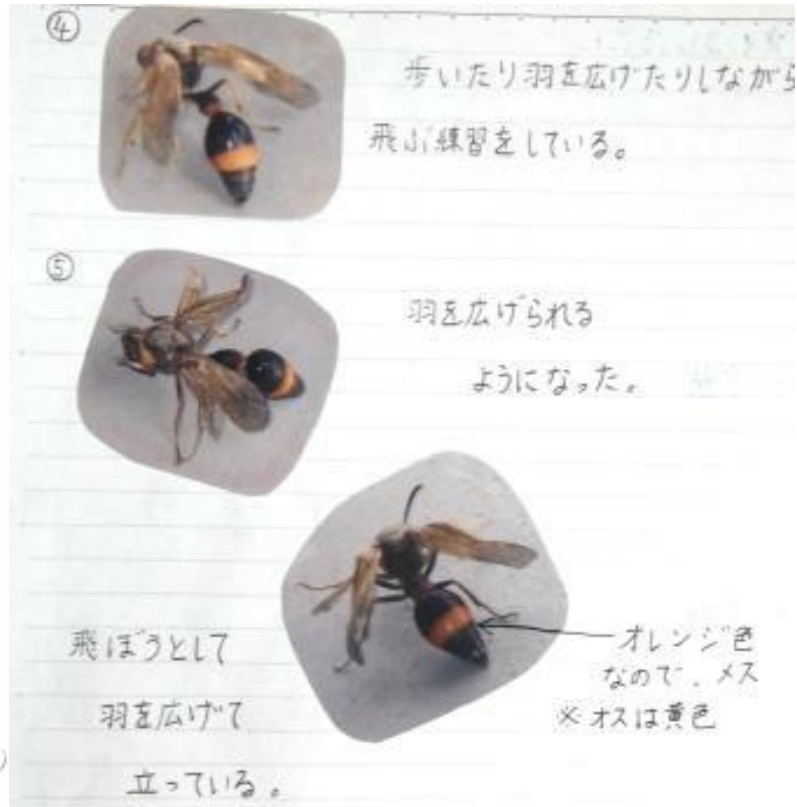 ④
歩いたり羽を広げたりしながら
飛ぶ練習をしている。
⑤
羽を広げられる
ようになった。
飛ぼうとして
羽を広げて
立っている。
オレンジ色
なので、メス
※オスは黄色